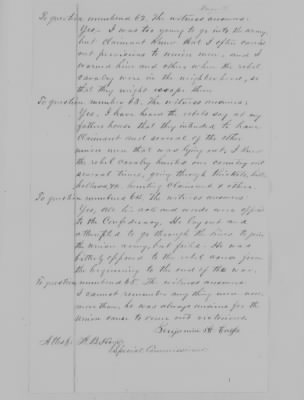 To question numbered 62. The witness answers:
Yes. I was too young to go into the army,
but claimant knew that I often carried
out provisions to union men, and I
warned him and others when the rebel
cavalry were in the neighborhood, so
that they might escape them
To question number 63. The witness answers;
Yes, I have heard the rebels say at my
fathers house that they intended to have
Claimant and several of the other
union men that was lying out, I knew
the rebel cavalry hunted our country out
several times, going through thickets, hills,
hollows, &c. hunting claimant & others.
To question numbered 64. The witness answers
Yes, all his acts and words were opposed
to the Confederacy. He lay out and
attempted to go through the lines to join
the union army, but failed. He was
bitterly opposed to the rebel cause from
the beginning to the end of the war,
To question numbered 65. The witness answers
I cannot remember any thing more now.
more than, he was always anxious for the
union cause to come out victorious.
Benjamin H.
Attest. H. B.
Special Commissioner